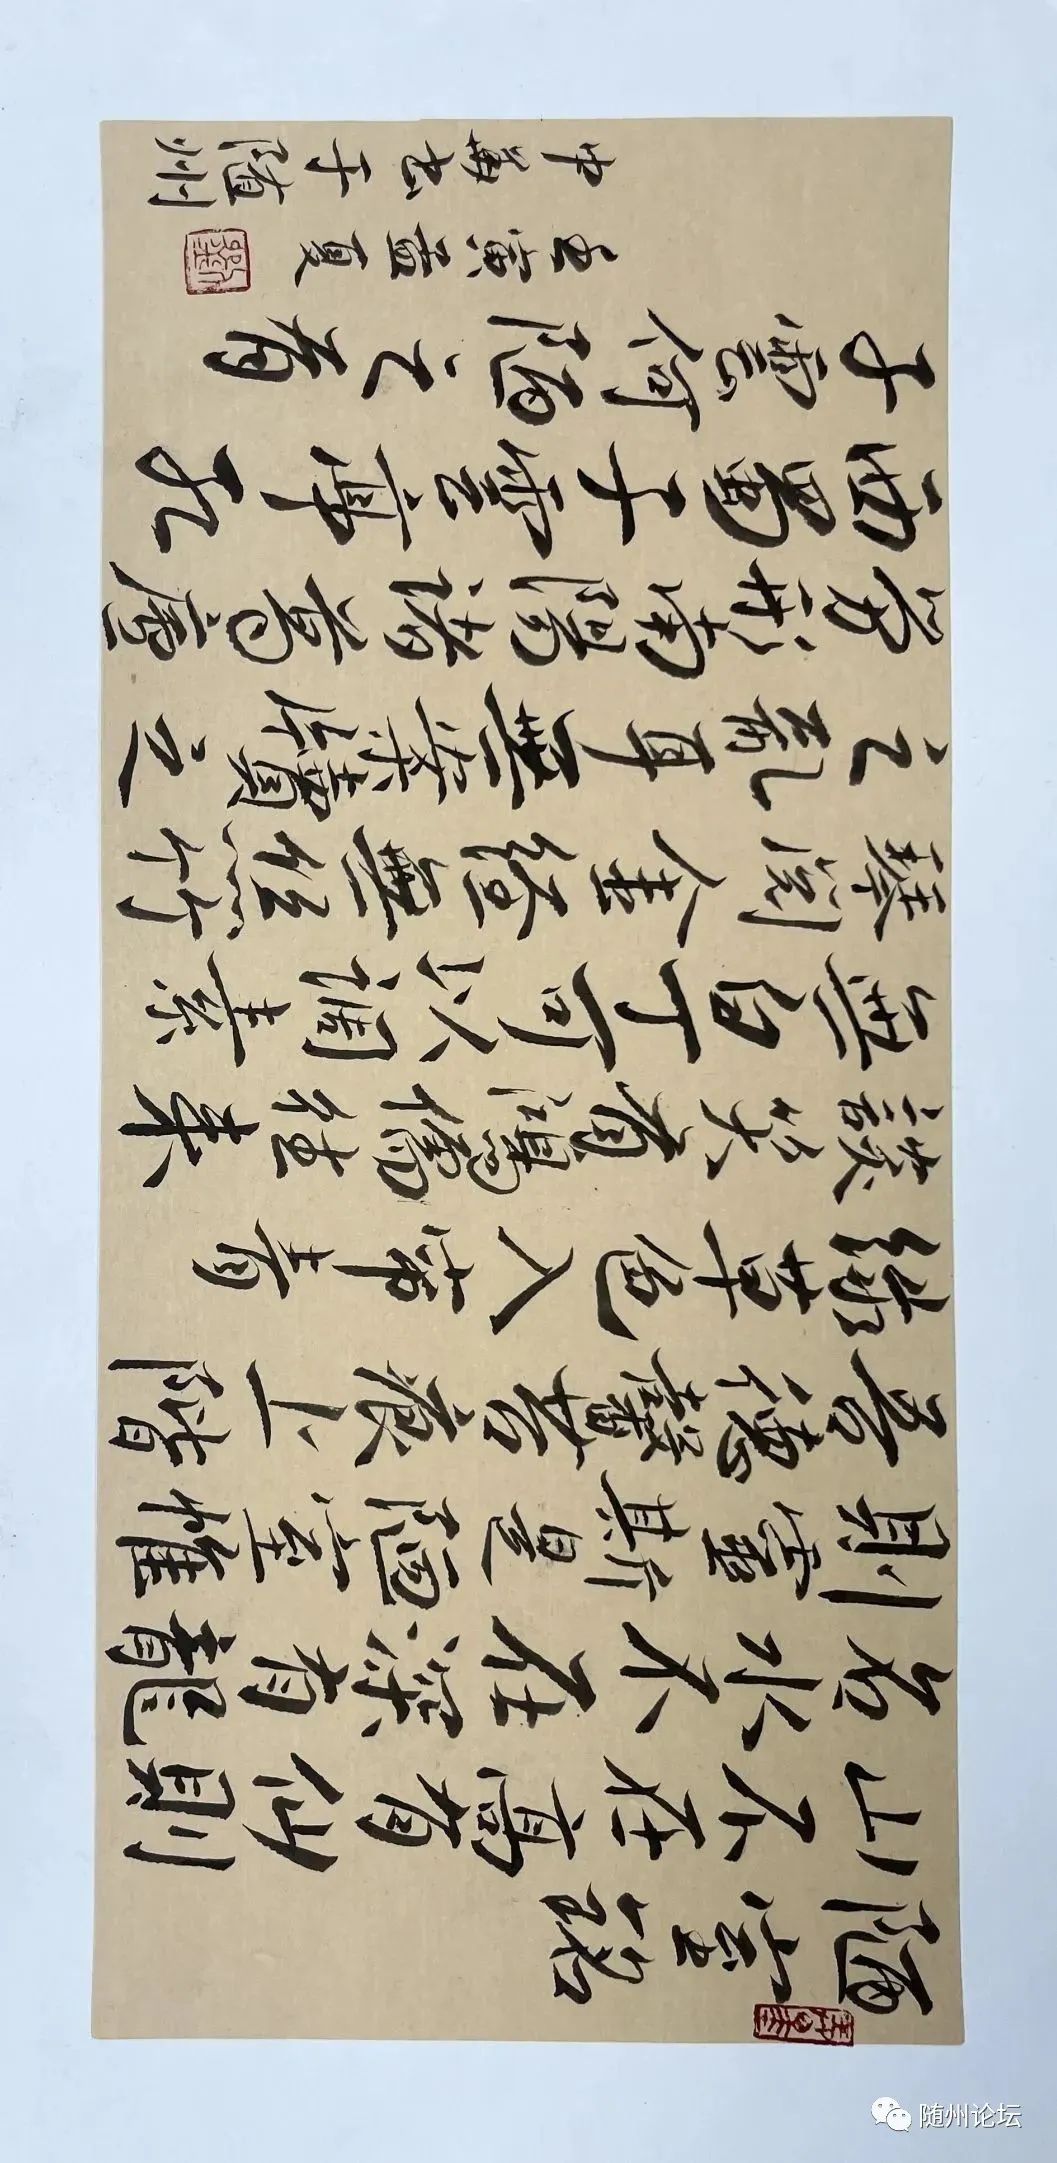 陋室銘
山不在高有仙則
名水不在深有龍
則靈斯是陋室惟
吾德馨苔痕上階
綠草色入帘青
談笑有鴻儒往來
無白丁可以調素
琴閱金經無絲竹
之亂耳無案牘之
勞形南陽諸葛廬
西蜀子雲亭孔
子雲何陋之有
壬寅孟夏
中華书于随州
随州论坛